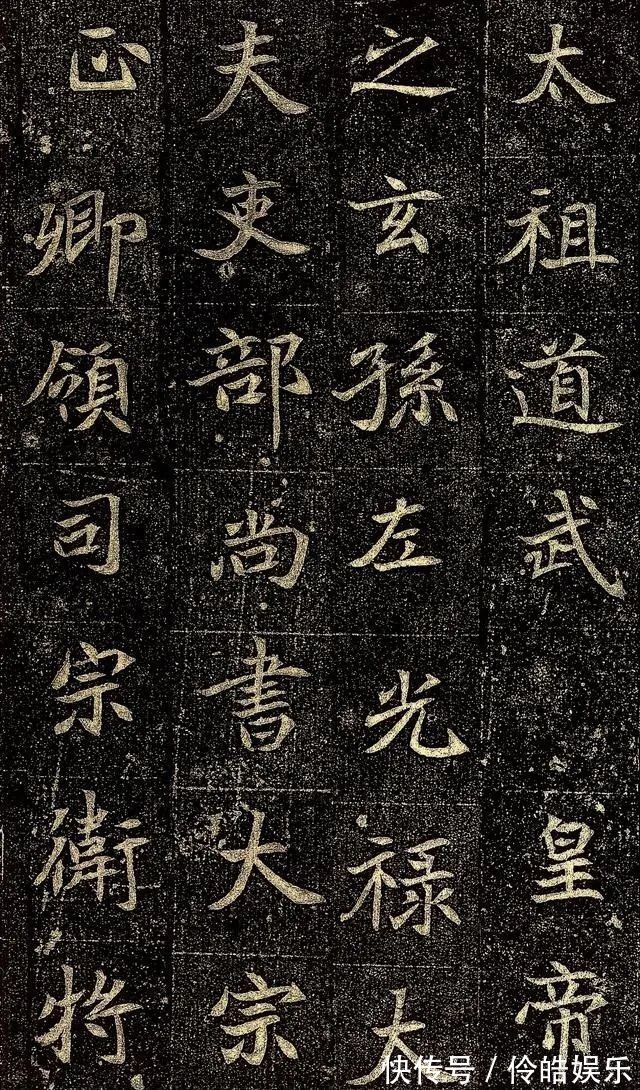 太祖道武皇帝
之玄孫左光禄大
夫吏部尚書大宗
正卿領司宗衛將
快传号/伶皓娱乐